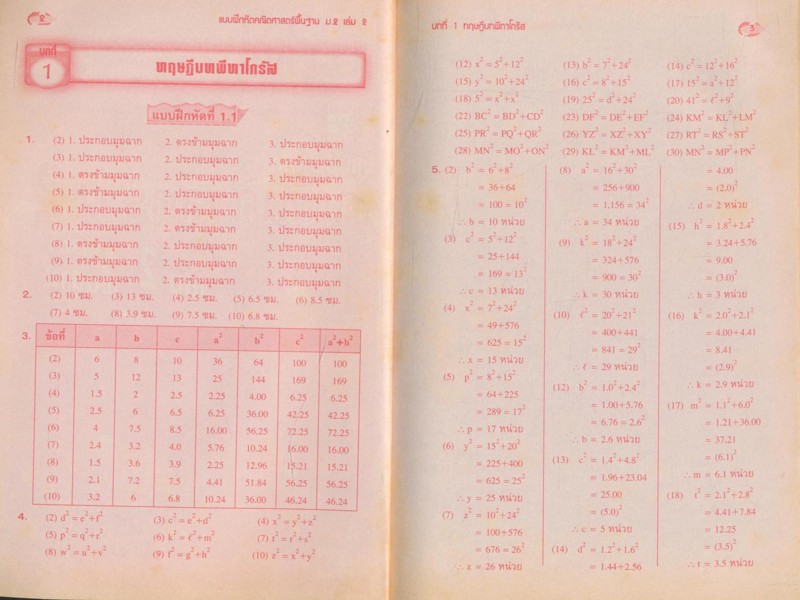 ๒ แบบฝึกหัดคณิตศาสตร์พื้นฐาน ม.๒ เล่ม ๒
บทที่
1 ทฤษฎีบทพีทาโกรัส
แบบฝึกหัดที่ 1.1
1. (2) 1. ประกอบมุมฉาก 2. ตรงข้ามมุมฉาก 3. ประกอบมุมฉาก
(3) 1. ประกอบมุมฉาก 2. ประกอบมุมฉาก 3. ตรงข้ามมุมฉาก
(4) 1. ตรงข้ามมุมฉาก 2. ประกอบมุมฉาก 3. ประกอบมุมฉาก
(5) 1. ตรงข้ามมุมฉาก 2. ประกอบมุมฉาก 3. ประกอบมุมฉาก
(6) 1. ประกอบมุมฉาก 2. ตรงข้ามมุมฉาก 3. ประกอบมุมฉาก
(7) 1. ประกอบมุมฉาก 2. ตรงข้ามมุมฉาก 3. ประกอบมุมฉาก
(8) 1. ตรงข้ามมุมฉาก 2. ประกอบมุมฉาก 3. ประกอบมุมฉาก
(9) 1. ตรงข้ามมุมฉาก 2. ประกอบมุมฉาก 3. ประกอบมุมฉาก
(10) 1. ประกอบมุมฉาก 2. ตรงข้ามมุมฉาก 3. ประกอบมุมฉาก
2. (2) 10 ซม. (3) 13 ซม. (4) 2.5 ซม. (5) 6.5 ซม. (6) 8.5 ซม.
(7) 4 ซม. (8) 3.9 ซม. (9) 7.5 ซม. (10) 6.8 ซม.
3. ข้อที่ a b c a² b² c² a²+b²
(2) 6 8 10 36 64 100 100
(3) 5 12 13 25 144 169 169
(4) 1.5 2 2.5 2.25 4.00 6.25 6.25
(5) 2.5 6 6.5 6.25 36.00 42.25 42.25
(6) 4 7.5 8.5 16.00 56.25 72.25 72.25
(7) 2.4 3.2 4.0 5.76 10.24 16.00 16.00
(8) 1.5 3.6 3.9 2.25 12.96 15.21 15.21
(9) 2.1 7.2 7.5 4.41 51.84 56.25 56.25
(10) 3.2 6 6.8 10.24 36.00 46.24 46.24
4. (2) d² = e²+f² (3) c² = e²+d² (4) x² = y²+z²
(5) p² = q²+r² (6) k² = ℓ²+m² (7) t² = r²+s²
(8) w² = u²+v² (9) f² = g²+h² (10) z² = x²+y²
บทที่ 1 ทฤษฎีบทพีทาโกรัส 3
(12) x² = 5²+12² (13) b² = 7²+24² (14) c² = 12²+16²
(15) y² = 10²+24² (16) c² = 8²+15² (17) 15² = a²+12²
(18) 5² = x²+x² (19) 25² = d²+24² (20) 41² = ℓ²+9²
(22) BC² = BD²+CD² (23) DF² = DE²+EF² (24) KM² = KL²+LM²
(25) PR² = PQ²+QR² (26) YZ² = XZ²+XY² (27) RT² = RS²+ST²
(28) MN² = MO²+ON² (29) KL² = KM²+ML² (30) MN² = MP²+PN²
5. (2) b² = 6²+8²
= 36+64
= 100 = 10²
∴ b = 10 หน่วย
(3) c² = 5²+12²
= 25+144
= 169 = 13²
∴ c = 13 หน่วย
(4) x² = 7²+24²
= 49+576
= 625 = 15²
∴ x = 15 หน่วย
(5) p² = 8²+15²
= 64+225
= 289 = 17²
∴ p = 17 หน่วย
(6) y² = 15²+20²
= 225+400
= 625 = 25²
∴ y = 25 หน่วย
(7) z² = 10²+24²
= 100+576
= 676 = 26²
∴ z = 26 หน่วย
(8) a² = 16²+30²
= 256+900
= 1,156 = 34²
∴ a = 34 หน่วย
(9) k² = 18²+24²
= 324+576
= 900 = 30²
∴ k = 30 หน่วย
(10) ℓ² = 20²+21²
= 400+441
= 841 = 29²
∴ ℓ = 29 หน่วย
(12) b² = 1.0²+2.4²
= 1.00+5.76
= 6.76 = 2.6²
∴ b = 2.6 หน่วย
(13) c² = 1.4²+4.8²
= 1.96+23.04
= 25.00
= (5.0)²
∴ c = 5 หน่วย
(14) d² = 1.2²+1.6²
= 1.44+2.56
= 4.00
= (2.0)²
∴ d = 2 หน่วย
(15) h² = 1.8²+2.4²
= 3.24+5.76
= 9.00
= (3.0)²
∴ h = 3 หน่วย
(16) k² = 2.0²+2.1²
= 4.00+4.41
= 8.41
= (2.9)²
∴ k = 2.9 หน่วย
(17) m² = 1.1²+6.0²
= 1.21+36.00
= 37.21
= (6.1)²
∴ m = 6.1 หน่วย
(18) t² = 2.1²+2.8²
= 4.41+7.84
= 12.25
= (3.5)²
∴ t = 3.5 หน่วย